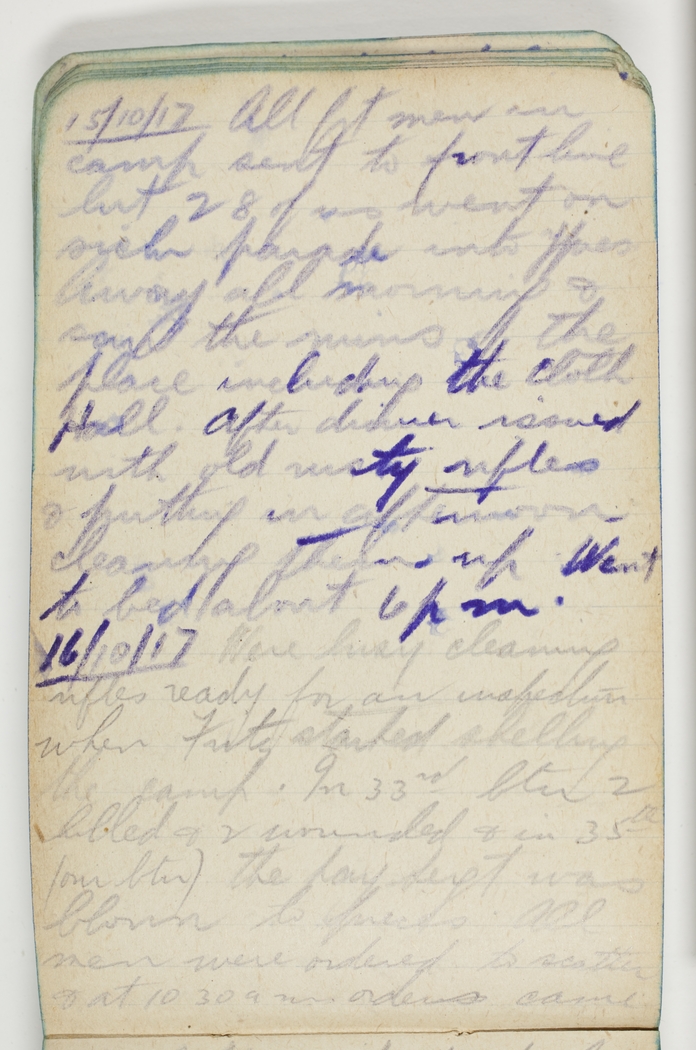 15/10/17 All fit men in
camp sent to front line
but 28 of us went on
sick parade into Ypres
Away all morning &
saw the ruins of the
place including the Cloth
Hall. After dinner issued
with old rusty rifles
& putting in afternoon
cleaning them up Went
to bed about 6 p m.
16/10/17 Were busy cleaning
rifles ready for an inspection
when Fritz started shelling
the camp. In 33rd btn 2
killed & 2 wounded & in 35th
(our btn) the pay sergt was
blown to pieces. All
men were ordered to scatter
& at 10 30 a m orders came